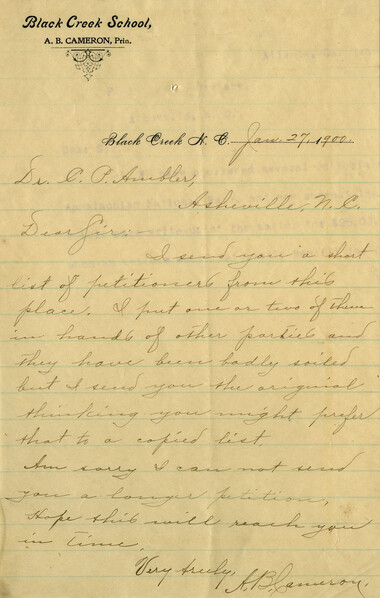 Black Creek School,
A. B. CAMERON, Prin.
Black Creek N. C. Jan. 27, 1900.
Dr. C. P. Ambler,
Asheville, N.C.
Dear Sir:
I send you a short
list of petitioners from this
place. I put one or two of them
in hands of other parties and
they have been badly soiled
but I send you the original
thinking you might prefer
that to a copied list.
Am sorry I can not send
you a longer petition,
Hope this will reach you
in time.
Very truly,
A. B. Cameron.